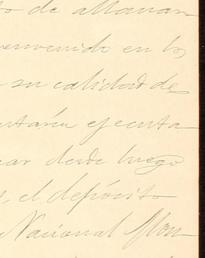 to de allanan
envenido en los
su calidad de
utaria ejecuta
nar desde luego
el depósito
Nacional Mon-